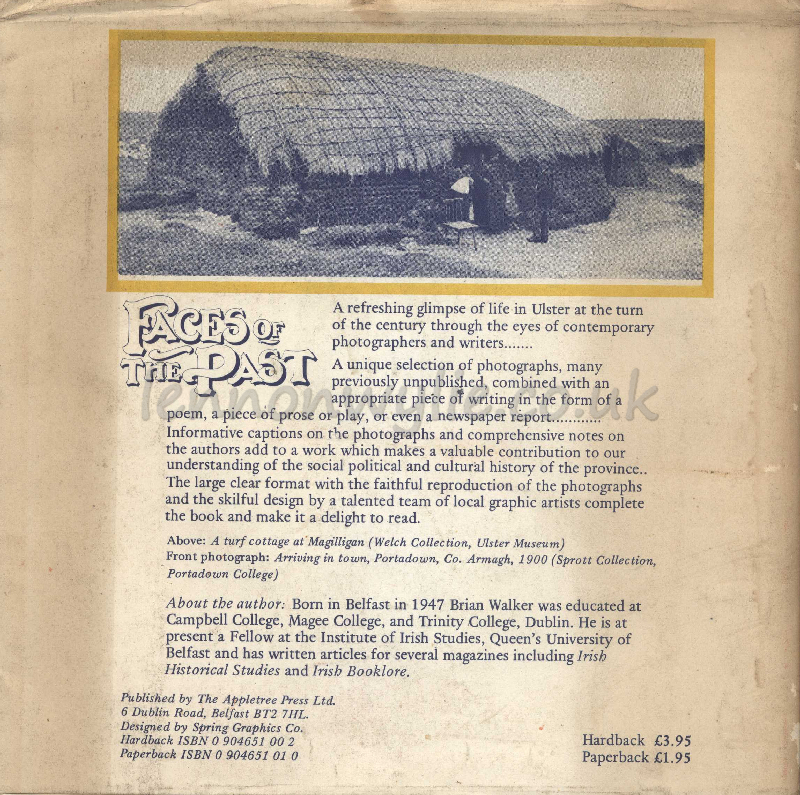 FACES OF
THE PAST
A refreshing glimpse of life in Ulster at the turn
of the century through the eyes of contemporary
photographers and writers.......
A unique selection of photographs, many
previously unpublished, combined with an
appropriate piece of writing in the form of a
poem, a piece of prose or play, or even a newspaper report............
Informative captions on the photographs and comprehensive notes on
the authors add to a work which makes a valuable contribution to our
understanding of the social political and cultural history of the province..
The large clear format with the faithful reproduction of the photographs
and the skilful design by a talented team of local graphic artists complete
the book and make it a delight to read.
Above: A turf cottage at Magilligan (Welch Collection, Ulster Museum)
Front photograph: Arriving in town, Portadown, Co. Armagh, 1900 (Sprott Collection,
Portadown College)
About the author: Born in Belfast in 1947 Brian Walker was educated at
Campbell College, Magee College, and Trinity College, Dublin. He is at
present a Fellow at the Institute of Irish Studies, Queen's University of
Belfast and has written articles for several magazines including Irish
Historical Studies and Irish Booklore.
Published by The Appletree Press Ltd.
6 Dublin Road, Belfast BT2 7HL.
Designed by Spring Graphics Co.
Hardback ISBN 0 904651 00 2
Paperback ISBN 0 904651 01 0
Hardback £3.95
Paperback £1.95
lennonwylie.co.uk